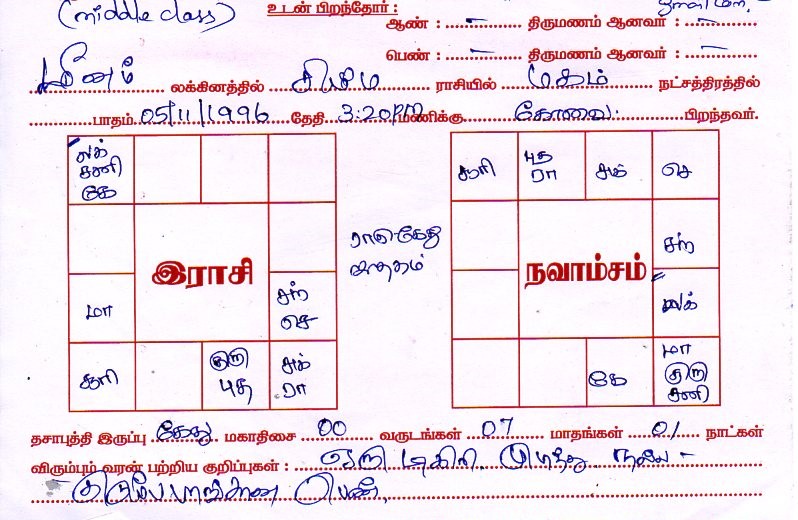 (middle class)
உடன் பிறந்தோர் :
ஆண் : – திருமணம் ஆனவர் : –
பெண் : – திருமணம் ஆனவர் : –
மீனம் லக்கினத்தில் சிம்ம ராசியில் மகம் நட்சத்திரத்தில்
பாதம் 05/11/1996 தேதி 3:20pm மணிக்கு கோவை பிறந்தவர்.
லக் சனி கே
மா
சுக் ரா
குரு புத
சந் செ
இராசி
ராகு கேது ஜாதகம்
புத ரா
செ
சந்
லக்
மா குரு சனி
கே
நவாம்சம்
தசாபுத்தி இருப்பு கேது மகாதிசை 00 வருடங்கள் 07 மாதங்கள் 01 நாட்கள்
விரும்பும் வரன் பற்றிய குறிப்புகள் : ஒரு டிகிரி முடித்து நல்ல –
குடும்ப பாங்கான பெண்.